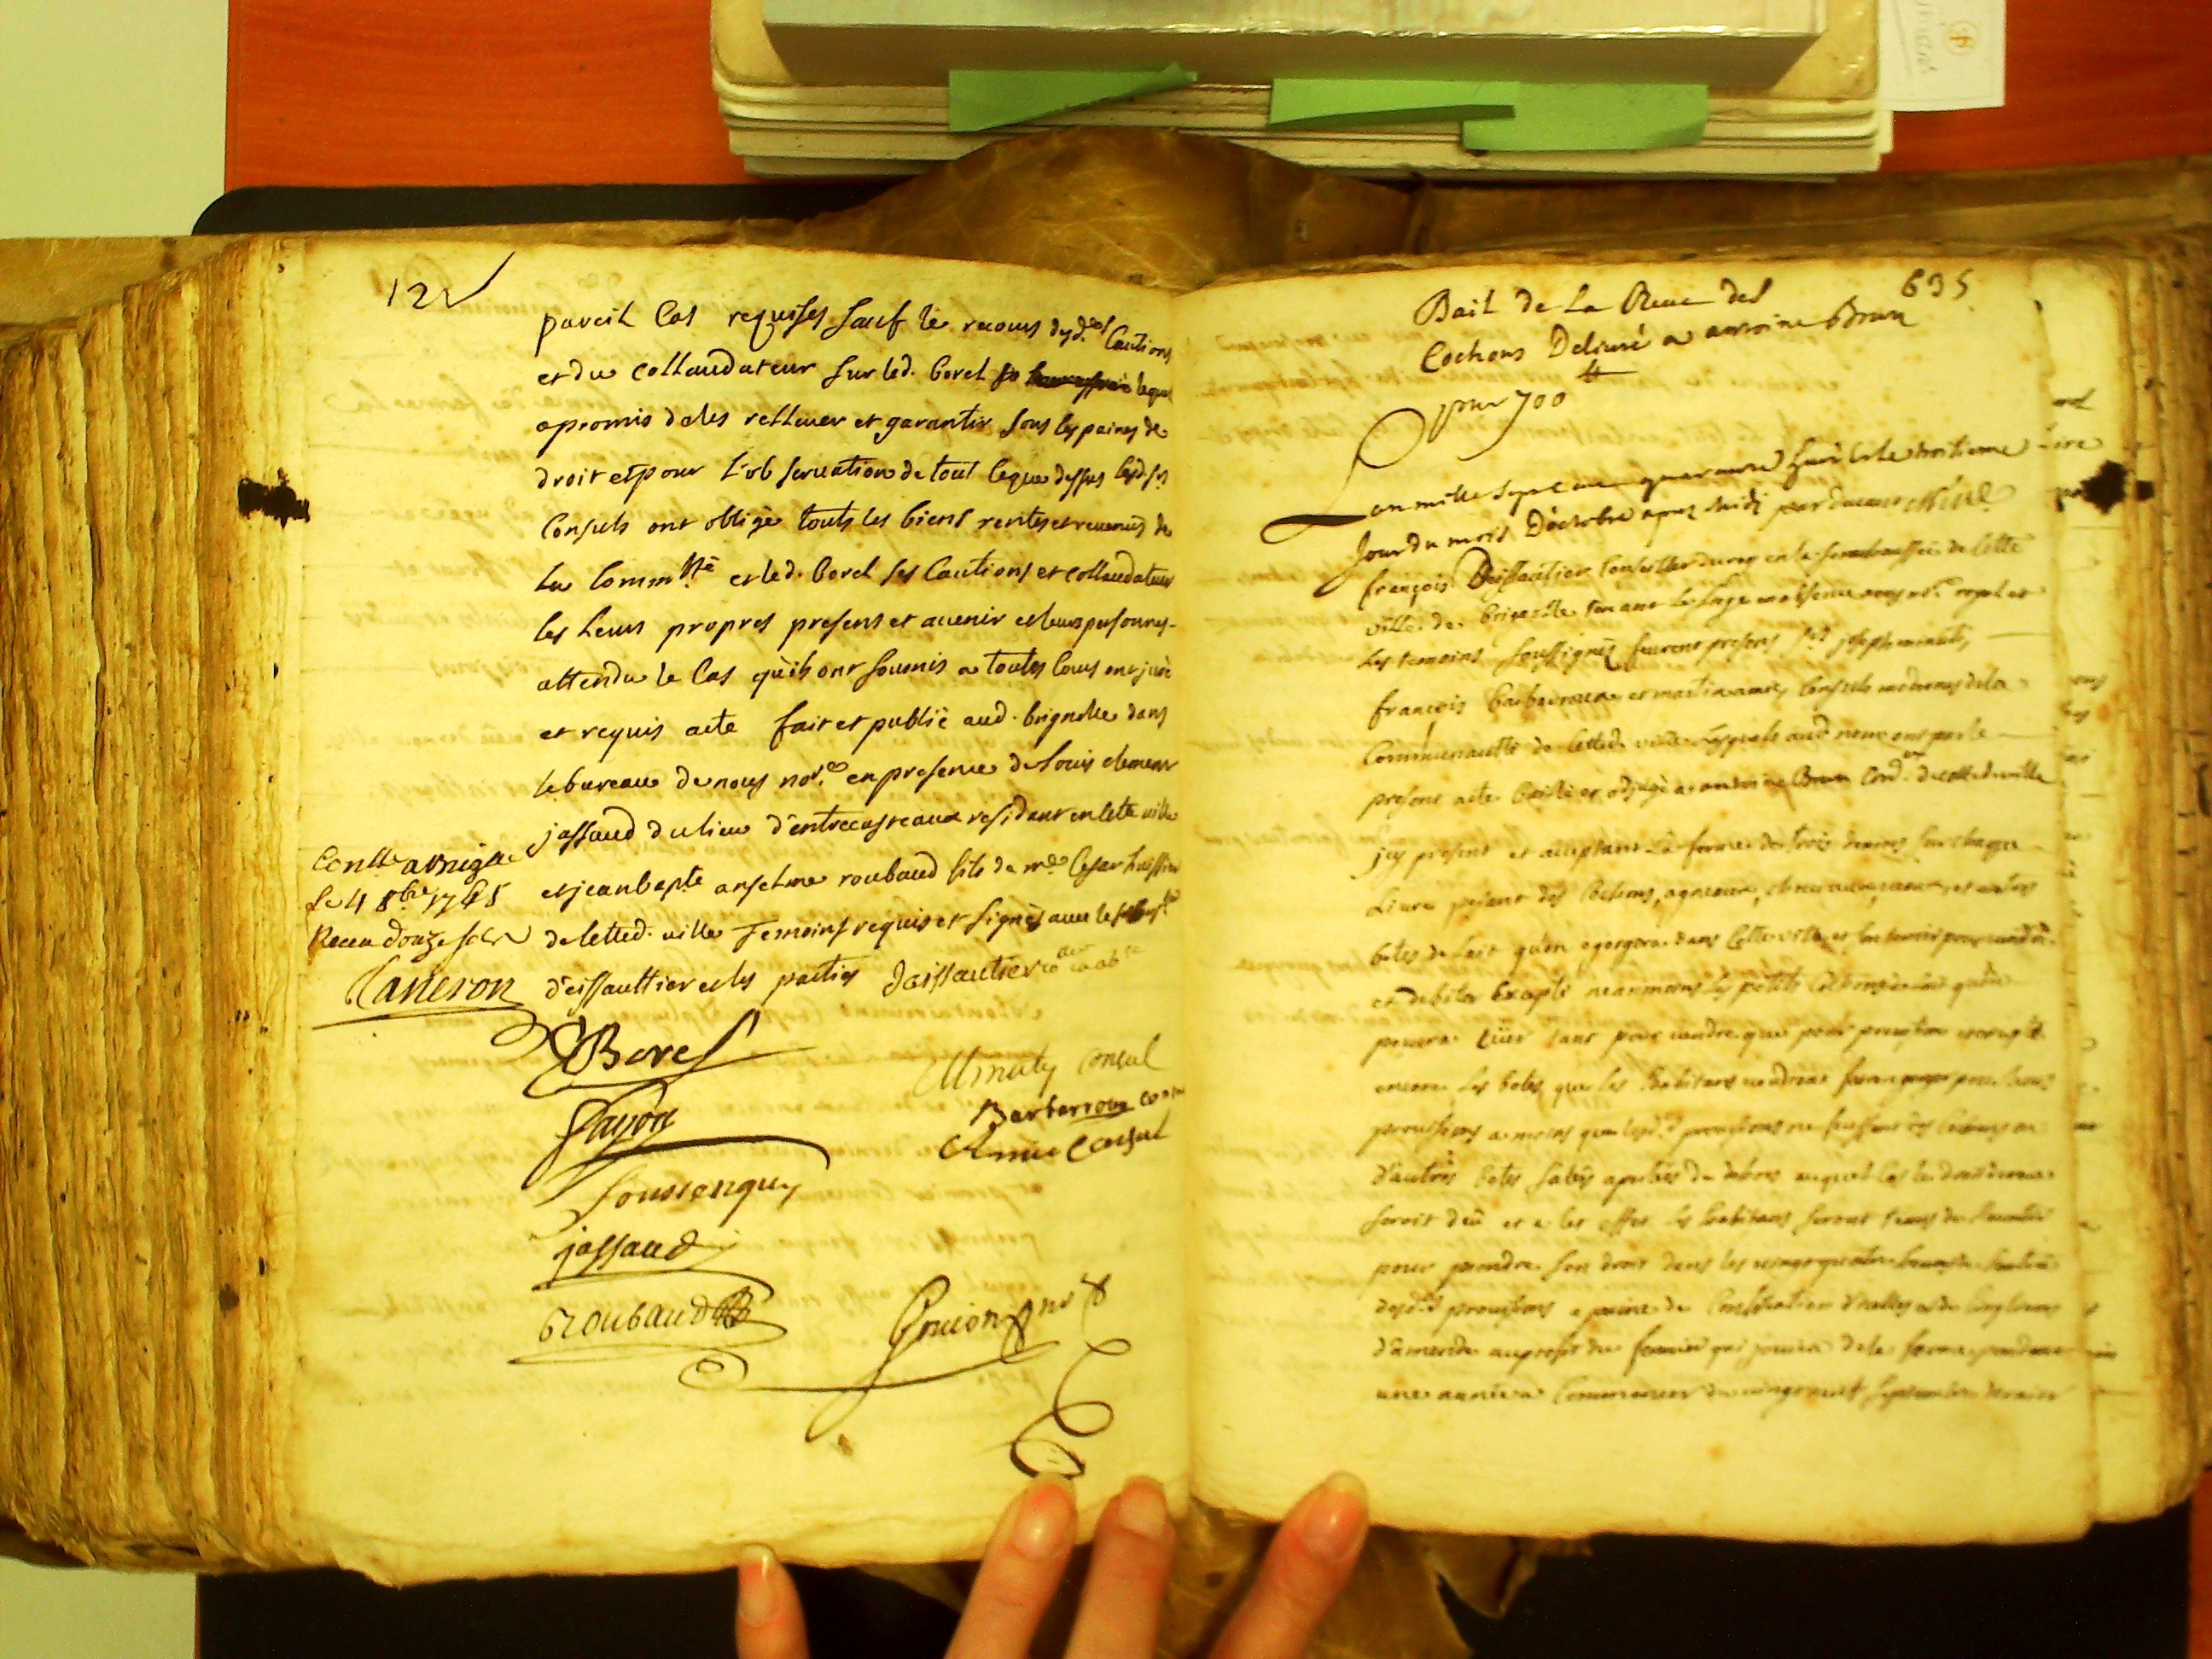 12
pareil Cas requises sauf le recours desd.es Cautions
et du collaudateur sur led. borel lequel
a promis de les rellever et garantir sous les paines de
droit et pour l'observation de tout ce que dessus lesd. srs
Consuls ont obligé touts les biens rentes et revenus de
la Comm.té et led. borel ses Cautions et collaudateur
les Leurs propres presens et avenir et leurs personnes
attendu le Cas qu'ils ont soumis a toutes Cours ont juré
et requis acte fait et publié aud. brignolle dans
le bureau de nous no.re en presence de Louis clement
jassaud du lieu d'entrecasteaux residant en cette ville
et jean bap.te anselme roubaud fils de m.e Cesar huissier
de cetted. ville Temoins requis et signés avec le
d'eissauttier et les parties Deissautier
Con.lle a brig.lle
Le 4 8bre 1748
Receu douze sols
Caneron
Borel
Fayon
Soussenquy
jassaud
Roubaud
Minuty Consul
Barbarroux
Amic Consul
635
Bail de La Reve des
Cochons Delivré a antoine Brun
pour 700 ₶
Lan mille sept cens quarante huit et le troisieme
Jour du mois D'octobre apres midi par devant
françois Deissautier Conseiller du roy en la senechaussée de Cette
ville de brignolle
Les temoins soussignés furent presens s.rs joseph minuti,
françois barbarroux et martin amic Consuls modernes de la
Communauté de Cetted. ville Lesquels aud. nom ont par le
present acte baillé et adjugé a antoine Brun Cord.er de cetted. ville
jcy present et acceptant la ferme de trois deniers sur chaque
Livre pesant des Cochons, agneaux, chevreaux et autres
betes de lait qu'on egorgera dans Cette ville et son terroir pour vendre
et debiter Excepté neanmoins les petits Cochons de lait qu'on
pourra tüer tant pour vendre que pour provision excepté
encore les betes que les habitans voudront faire egorger pour leurs
provisions a moins que lesd. provisions ne fussent des Cochons ou
d'autres betes
seroit deû et a cet effet les habitans seront tenus de
pour prendre son droit dans les vingt quatre heures
desd. provisions a peine de Confiscation d'icelles et de cinq livres
d'amende au profit du fermier qui jouira de la ferme pendant
une année a Commencer du vingt neuf septembre dernier